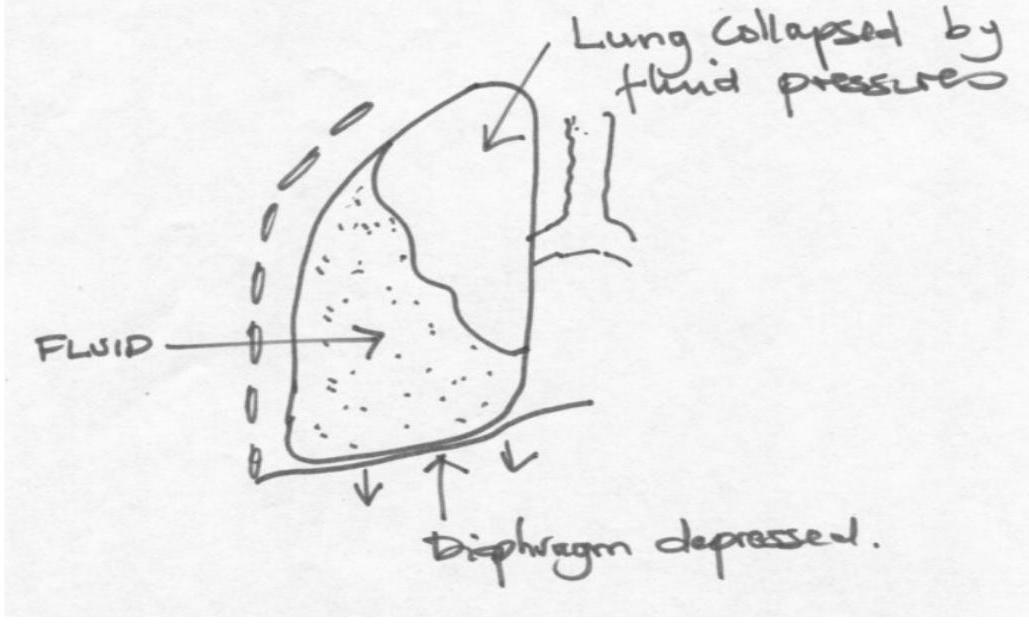 Lung Collapsed by
fluid pressures
FLUID
Diaphragm depressed.